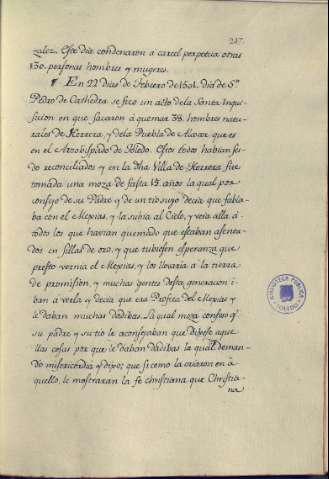 217.
zalez. Este dia condenaron a carcel perpetua otras
130. personas hombres y mugeres.
En 22 dias de Febrero de 1501. dia de Sn.
Pedro de Cathedra se hizo un acto de la Santa Inqui-
sicion en que sacaron a quemar 38. hombres natu-
rales de Herrera, y de la Puebla de Alcozer que es
en el Arzobispado de Toledo. Estos todos habian si-
do reconciliados y en la dha Villa de Herrera fue
tomada una moza de hasta 15 años la qual por
consejo de su Padre y de un tio suyo decia que habla-
ba con el Mexias, y la subia al Cielo, y veia allá á
todos los que havian quemado que estaban asenta-
dos en sillas de oro, y que tubiesen esperanza que
presto vernia el Mexias, y los llevaria á la tierra
de promision, y muchas gentes desta generacion i-
ban á verla y decia que era Profeta del Mexias y
le daban muchas dadibas. La qual moza confesó q.e
su padre y su tio le aconsejaban que dixese aque-
llas cosas por que le daban dadibas la qual deman-
do misericordia y dixo; que si como la criaron en a-
quello, le mostraran la fe christiana que Christia-
na
BIBLIOTECA PUBLICA
TOLEDO